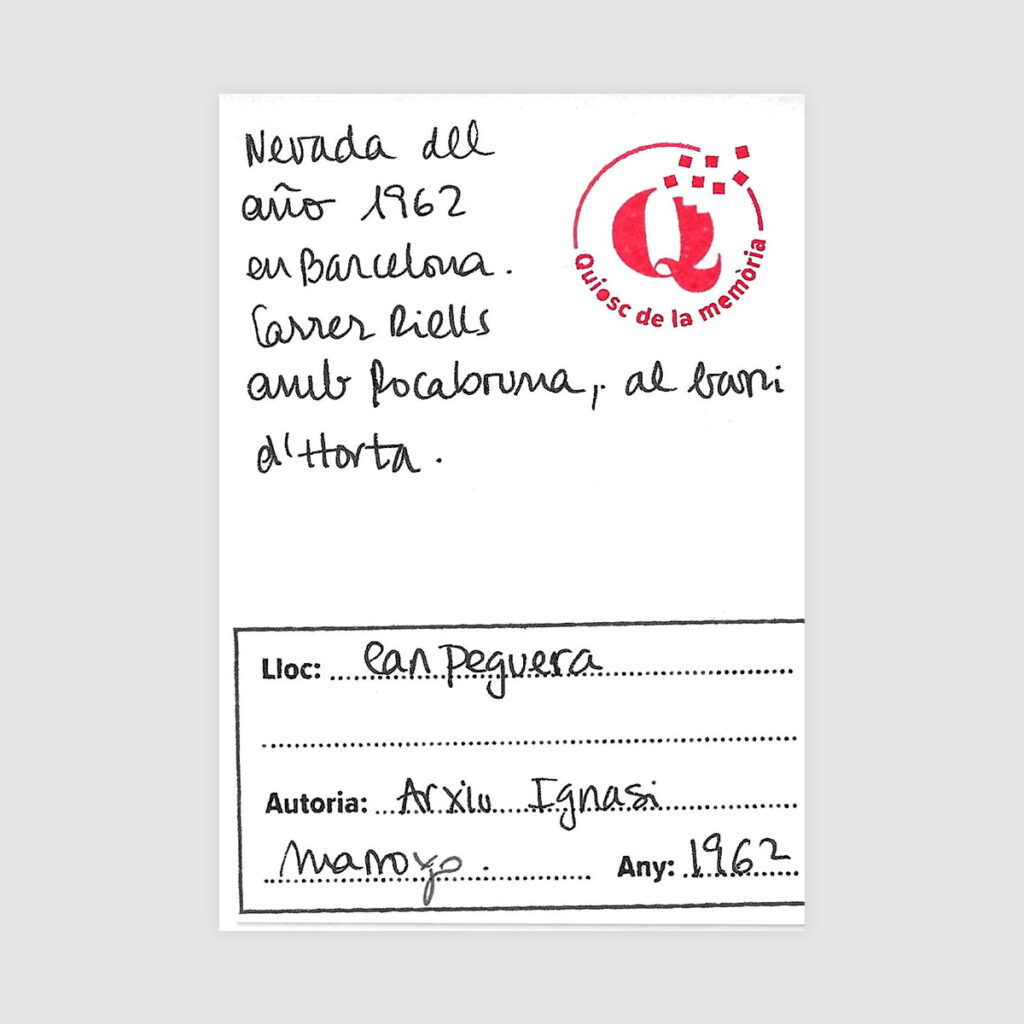 Nevada del
año 1962
en Barcelona.
Carrer Riells
amb Rocabruna, al barri
d'Horta.
Quiosc de la memòria
Lloc: Can Peguera
Autoria: Arxiu Ignasi
Marroyo. Any: 1962